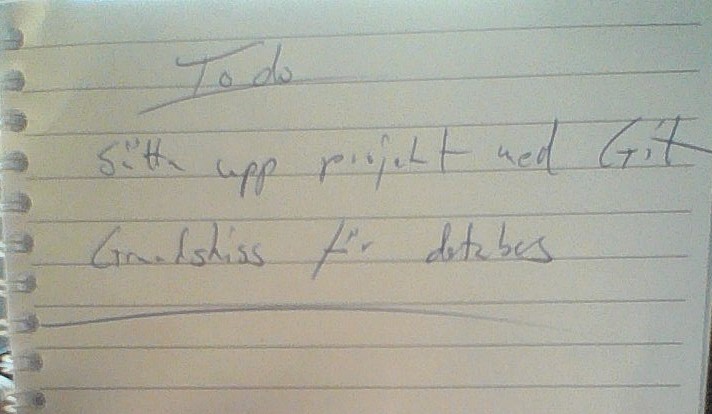 To do
Sätta upp projekt med Git
Grundskiss för databas